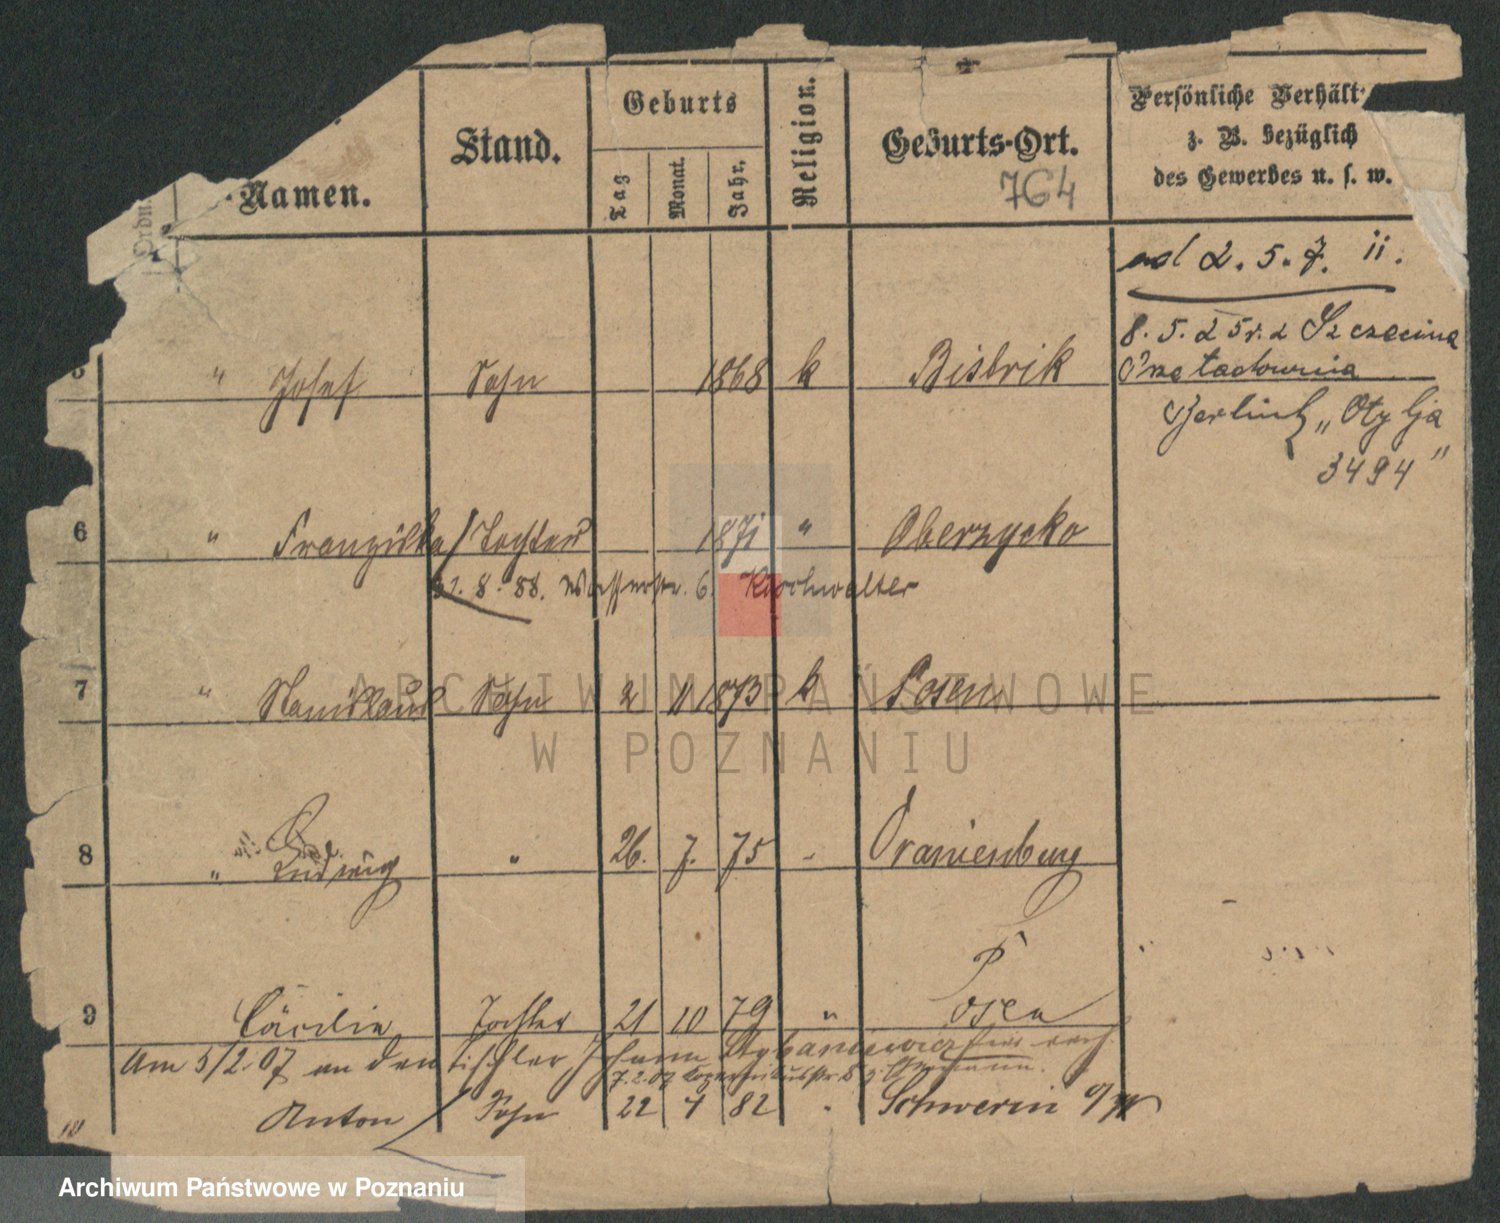 Ordn.
Namen.
Stand.
Geburts
Tag
Monat.
Jahr.
Religion.
Geburts-Ort.
764
Persönliche Verhält
z. B. bezüglich
des Gewerbes u. s. w.
ad 2. 5. 7. ii.
8. 5. 25 r. z Szczecina
Przeładownia
" Otylja
3494"
5 " Josef Sohn 1868 k Bistrik
6 " Franziska / Tochter 1871 " Oberzycko
31. 8. 88. Wasserstr. 6.
7 " Stanislaus Sohn 2 11 1873 k Posen
8 " Ludwig " 26. 7. 75 - Oranienburg
P
9 Cäcilie Tochter 21 10 79 " Posen
Am 5/2.07 an den Tischler Johann
7.2.07
10 Anton Sohn 22 4 82 " Schwerin a/W
ARCHIWUM PAŃSTWOWE
W POZNANIU
Archiwum Państwowe w Poznaniu